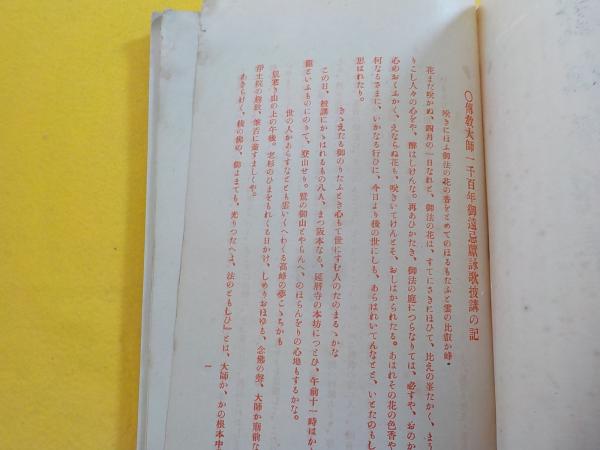 〇傳敎大師一千百年御遠忌獻詠歌披講の記
咲きにほふ御法の花の香をとめてのほるもたふと雲の比叡か峰。
花まだ咲かぬ、四月の一日なれと、御法の花は、すてにさきにほひて、比えの峯たかく、まう
りこし人々の心をや、醉はしけんな。再あひかたき、御法の庭につらなりては、必すや、おのか
心のおくふかく、えならぬ花も、咲きいてけんとそ、おしはかられたる。あはれその花の色香や
何なるさまに、いかなる行ひに、今日より後の世にしも、あらはれいてんなとと、いとたのもし
思はれたり。
きゝえたる御のりたふとき心もて世にすむ人のたのまるゝかな
この日、披講にかゝはれるもの八人、まつ阪本なる、延暦寺の本坊につとひ、午前十一時はか
籠といふものにのりて、登山せり。鷲の御山とやらんへ、のほらんをりの心地もするかな。
世の人かあらすなとども雲いくへわくる高峰の夢こゝちかも
肌寒き山の上の午後。老杉のひまをもれくる日かけ、しめりおほゆる、念佛の聲、大師か廟前な
淨土院の寂寂、筆舌に盡すましくや。
あきらけく、後の佛の、御よまても、光りつたへよ、法のともしひ』とは、大師か、かの根本中
一